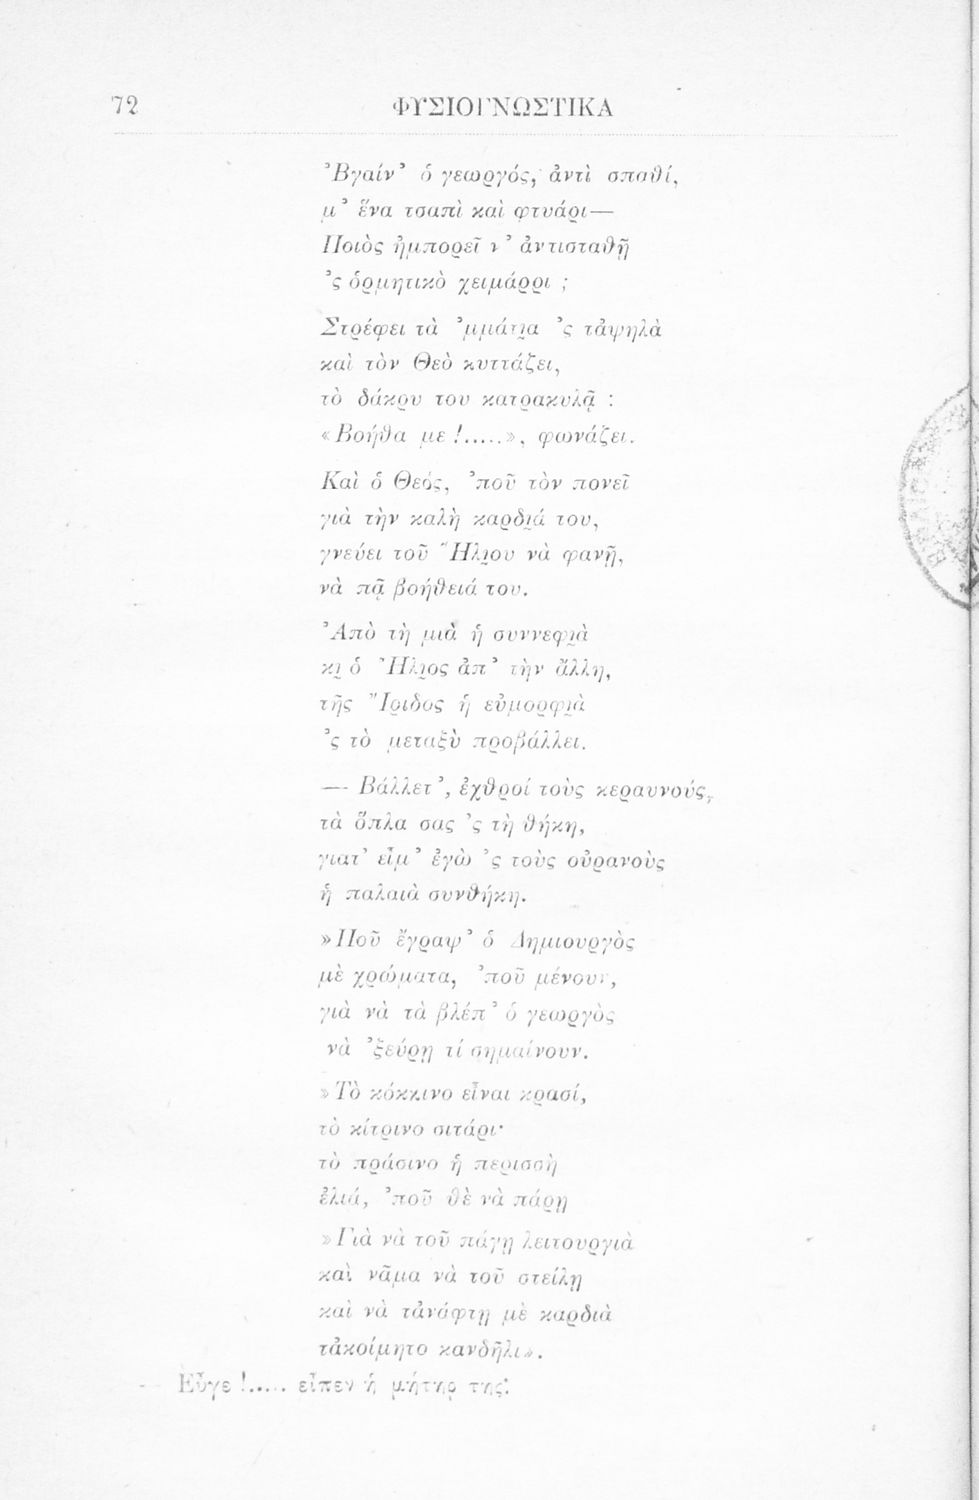 72 ΦΥΣΙΟΓΝΩΣΤΙΚΑ
Ἐβγαίν’ ὁ γεωργός, ἀντὶ σπαθί,
μ’ ἕνα τσαπὶ καὶ φτυάρι—
Ποιὸς ἠμπορεῖ ν’ ἀντισταθῇ
’ς ὁρμητικὸ χειμάρρι ;
Στρέφει τὰ ’μμάτι̯α ’ς τἀψηλὰ
καὶ τὸν Θεὸ κυττάζει,
τὸ δάκρυ του κατρακυλᾷ :
«Βοήθα με !.....», φωνάζει.
Καὶ ὁ Θεός, ’ποῦ τὸν πονεῖ
γιὰ τὴν καλὴ καρδι̯ά του,
γνεύει τοῦ Ἥλι̯ου νὰ φανῇ,
νὰ πᾷ βοήθειά του.
Ἀπὸ τὴ μιὰ ἡ συννεφι̯ὰ
κι̯ ὁ Ἥλι̯ος ἀπ’ τὴν ἄλλη,
τῆς Ἴριδος ἡ εὐμορφι̯ὰ
’ς τὸ μεταξὺ προβάλλει.
— Βάλλετ’, ἐχθροί τοὺς κεραυνούς,
τὰ ὅπλα σας ’ς τὴ θήκη,
γιατ’ εἶμ’ ἐγὼ ’ς τοὺς οὐρανοὺς
ἡ παλαιὰ συνθήκη.
»Ποῦ ἔγραψ’ ὁ Δημιουργὸς
μὲ χρώματα, ’ποῦ μένουν,
γιὰ νὰ τὰ βλέπ’ ὁ γεωργὸς
νὰ ’ξεύρῃ τί σημαίνουν.
»Τὸ κόκκινο εἶναι κρασί,
τὸ κίτρινο σιτάρι·
τὸ πράσινο ἡ περισσὴ
ἐλιά, ’ποῦ θὲ νὰ πάρῃ
»Γιὰ νὰ τοῦ πάγῃ λειτουργιὰ
καὶ νᾶμα νὰ τοῦ στείλῃ
καὶ νὰ τἀνάφτῃ μὲ καρδιὰ
τἀκοίμητο κανδῆλι».
— Εὖγε !..... εἶπεν ἡ μήτηρ της·